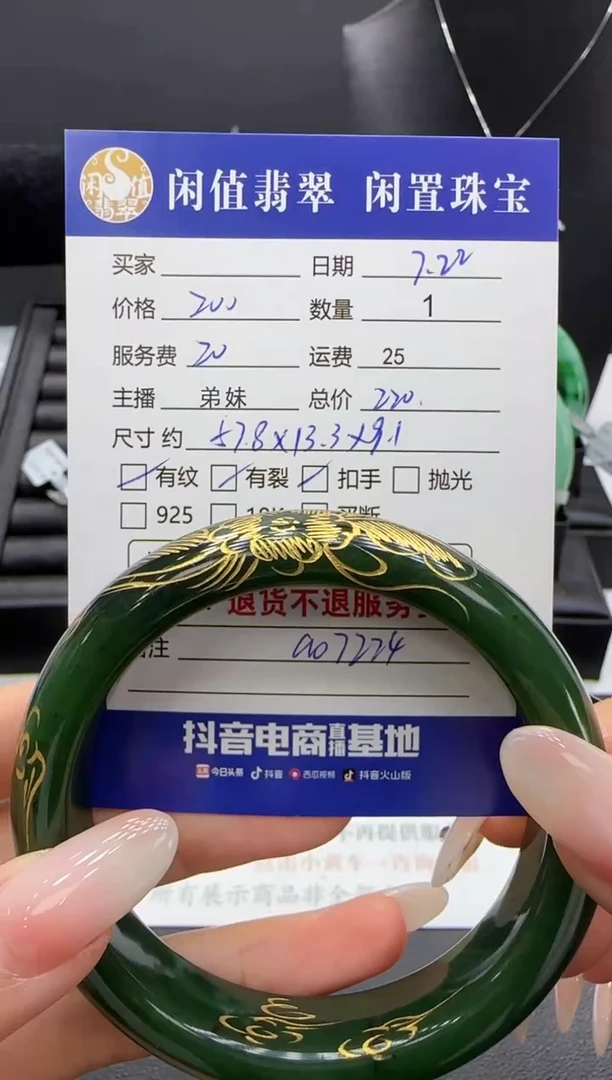 闲值翡翠
闲值翡翠 闲置珠宝
买家 日期 7.22
价格 200 数量 1
服务费 20 运费 25
主播 弟妹 总价 220.
尺寸 约 57.8×13.3×9.1
有纹 有裂 扣手 抛光
925 买断
退货不退服务
注 a07224
抖音电商直播基地
今日头条 抖音 西瓜视频 抖音火山版
不再提供服
点击小黄车
所有展示商品非全